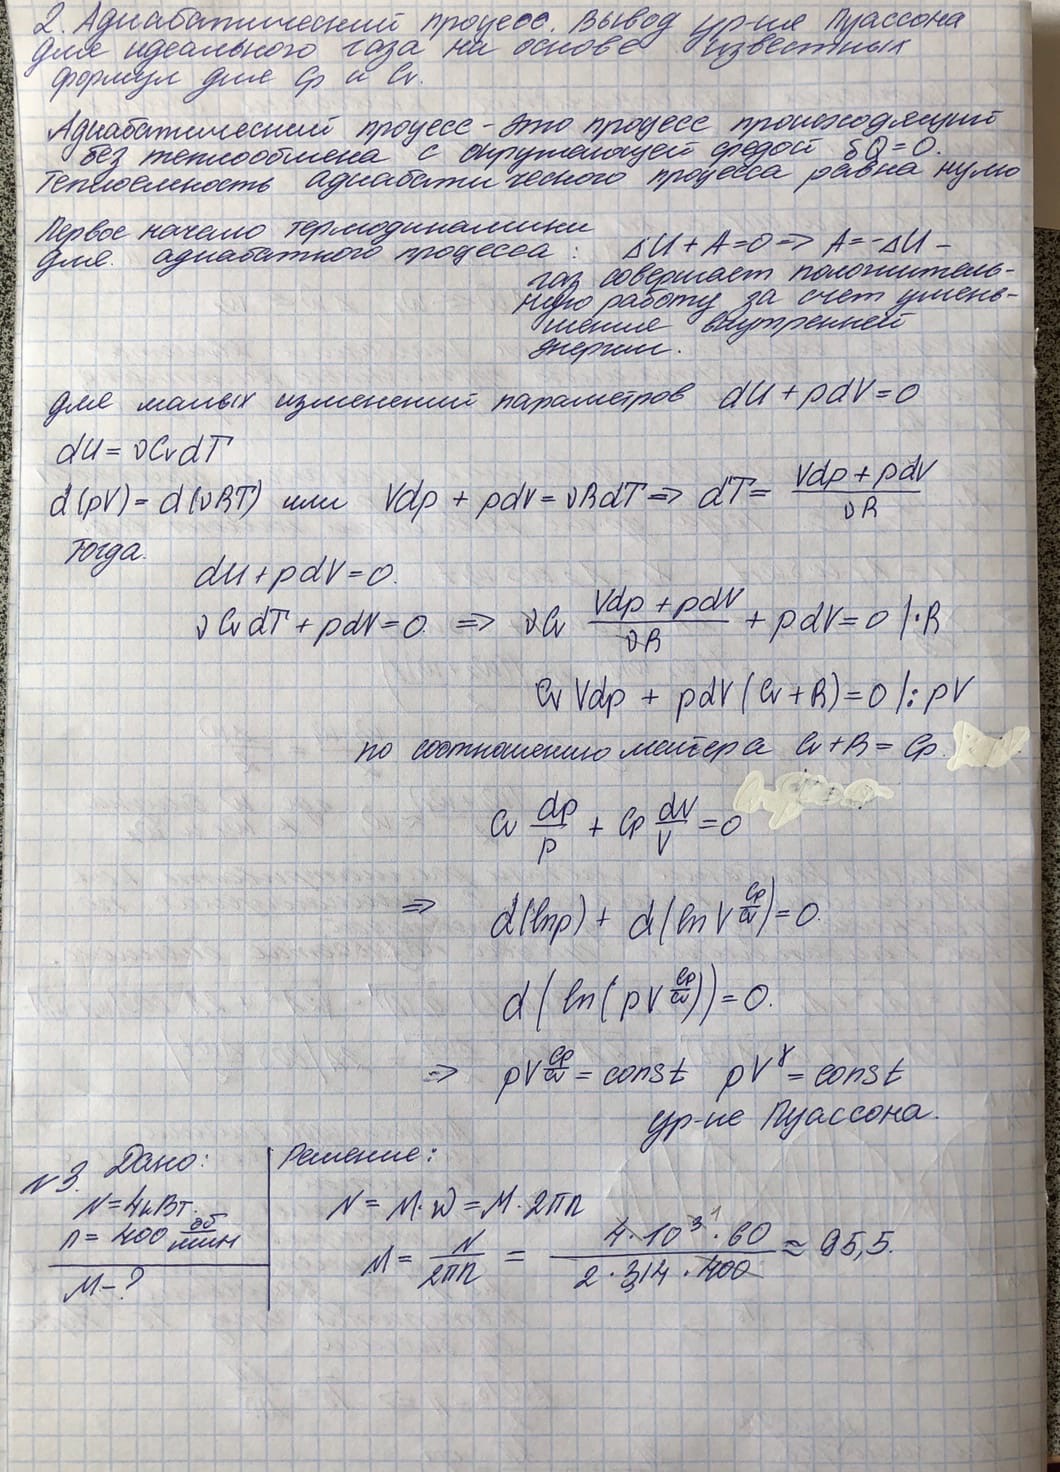 2. Адиабатический процесс. Вывод ур-ние Пуассона
для идеального газа на основе известных
формул для Cp и Cv.
Адиабатический процесс - это процесс происходящий
без теплообмена с окружающей средой δQ = 0.
Теплоемкость адиабатического процесса равна нулю
Первое начало термодинамики
для адиабатного процесса: ΔU + A = 0 => A = -ΔU -
газ совершает положитель-
ную работу за счет умень-
шение внутренней
энергии.
для малых изменений параметров dU + pdV = 0
dU = νCvdT
d(pV) = d(νRT) или Vdp + pdV = νRdT => dT = (Vdp + pdV)/(νR)
Тогда.
dU + pdV = 0.
νCvdT + pdV = 0. => νCv (Vdp + pdV)/(νR) + pdV = 0 |·R
CvVdp + pdV(Cv + R) = 0 |: pV
по соотношению майера Cv + R = Cp.
Cv dp/p + Cp dV/V = 0
=> d(lnp) + d(lnV^(Cp/Cv)) = 0.
d(ln(pV^(Cp/Cv))) = 0.
=> pV^(Cp/Cv) = const pV^γ = const
ур-ие Пуассона.
N3. Дано: Решение:
N = 4кВт. N = M·ω = M·2πn
n = 400 об/мин M = N/(2πn) = (4·10³·60)/(2·3,14·400) ≈ 95,5.
M - ?